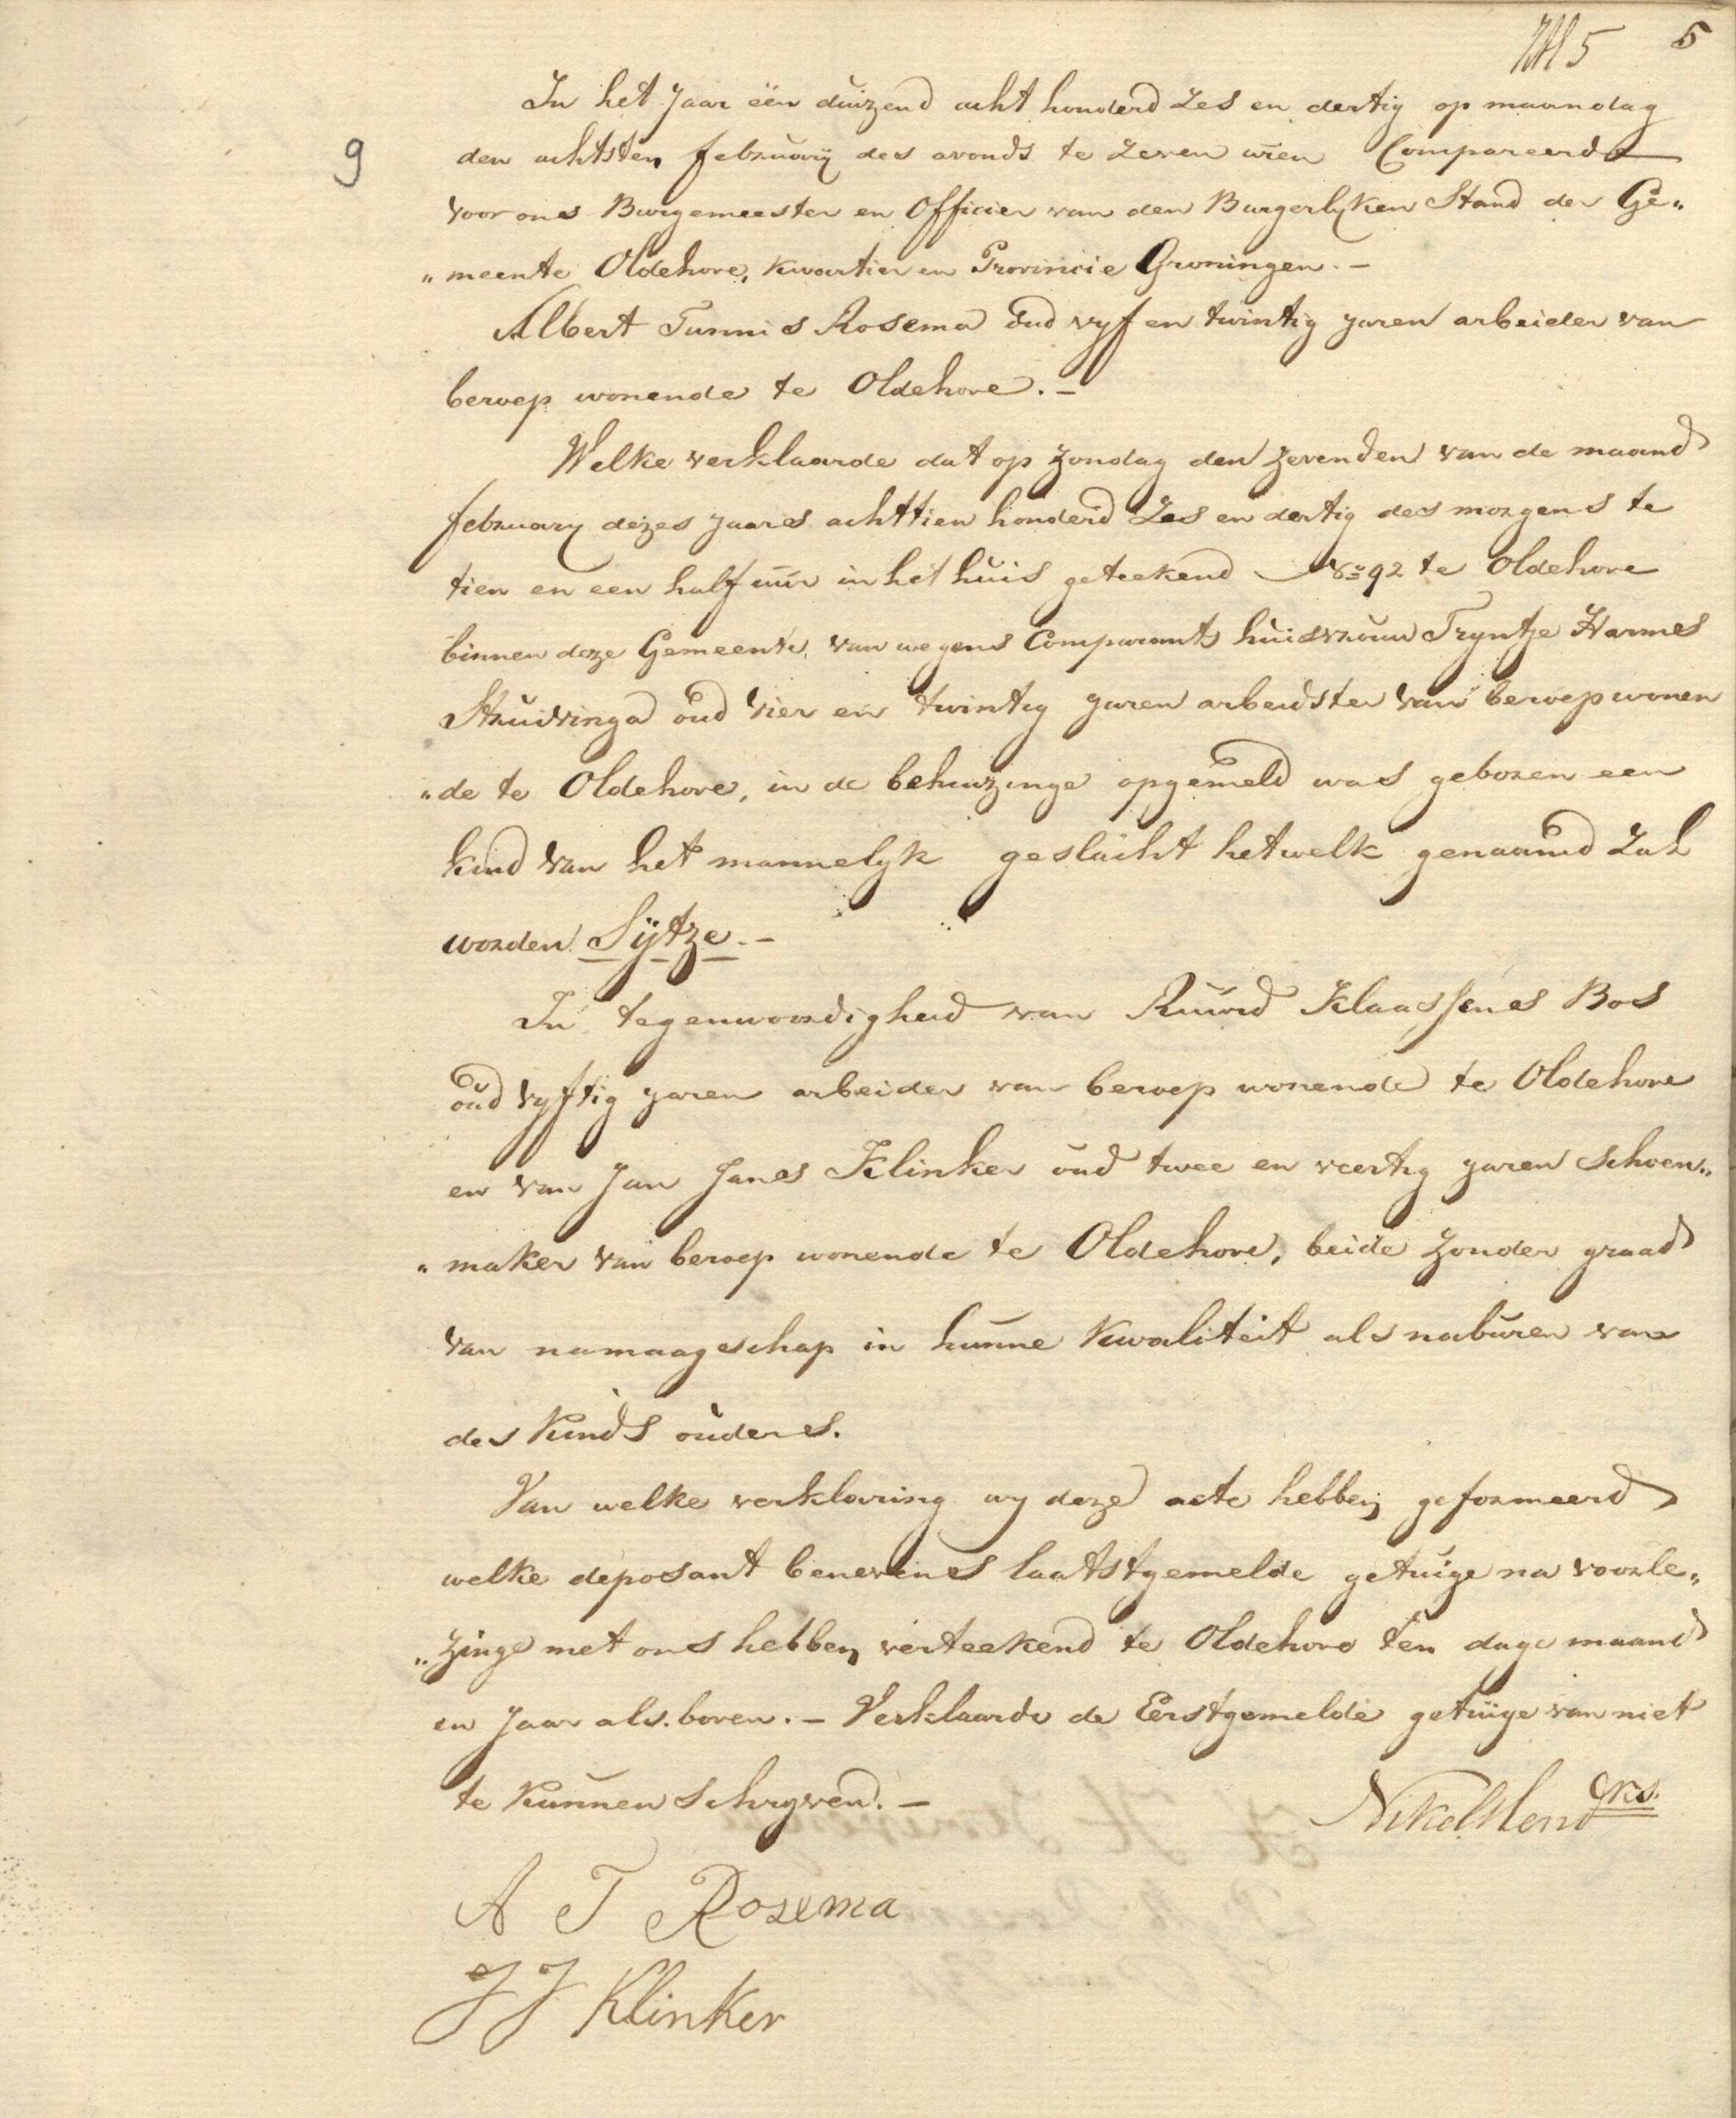 5 5
In het Jaar ëën duizend acht honderd zes en dertig op maandag
9
den achtsten february des avonds te zeven uren Compareerde
voor ons Burgemeester en Officier van den Burgerlyken Stand der Ge„
„meente Oldehove, kwartier en Provincie Groningen. –
Albert Tunnis Rosema oud vyf en twintig jaren arbeider van
beroep wonende te Oldehove. –
Welke verklaarde dat op Zondag den Zevenden van de maand
february dezes jaars achttien honderd Zes en dertig des morgens te
tien en een half uur in het huis geteekend No 92 te Oldehove
binnen deze Gemeente, van wegens Comparants huisvrouw Tryntje Harmes
Struivinga oud vier en twintig jaren arbeidster van beroep wonen
„de te Oldehove, in de behuizinge opgemeld was geboren een
kind van het mannelyk geslacht hetwelk genaamd Zal
worden Sÿtze. –
In tegenwoordigheid van Ruurd Klaassens Bos
oud vyftig jaren arbeider van beroep wonende te Oldehove
en van Jan Janes Klinker oud twee en veertig jaren schoen„
„maker van beroep wonende te Oldehove, beide Zonder graad
van namaagschap in hunne kwaliteit als naburen van
des Kinds ouders.
Van welke verklaring wy deze acte hebben geformeerd
welke deposant benevens laatstgemelde getuige na voorle„
„zinge met ons hebben verteekend te Oldehove ten dage maand
en Jaar als boven. – Verklaarde de Eerstgemelde getuige van niet
te kunnen schryven. –
A T Rosema
J J Klinker